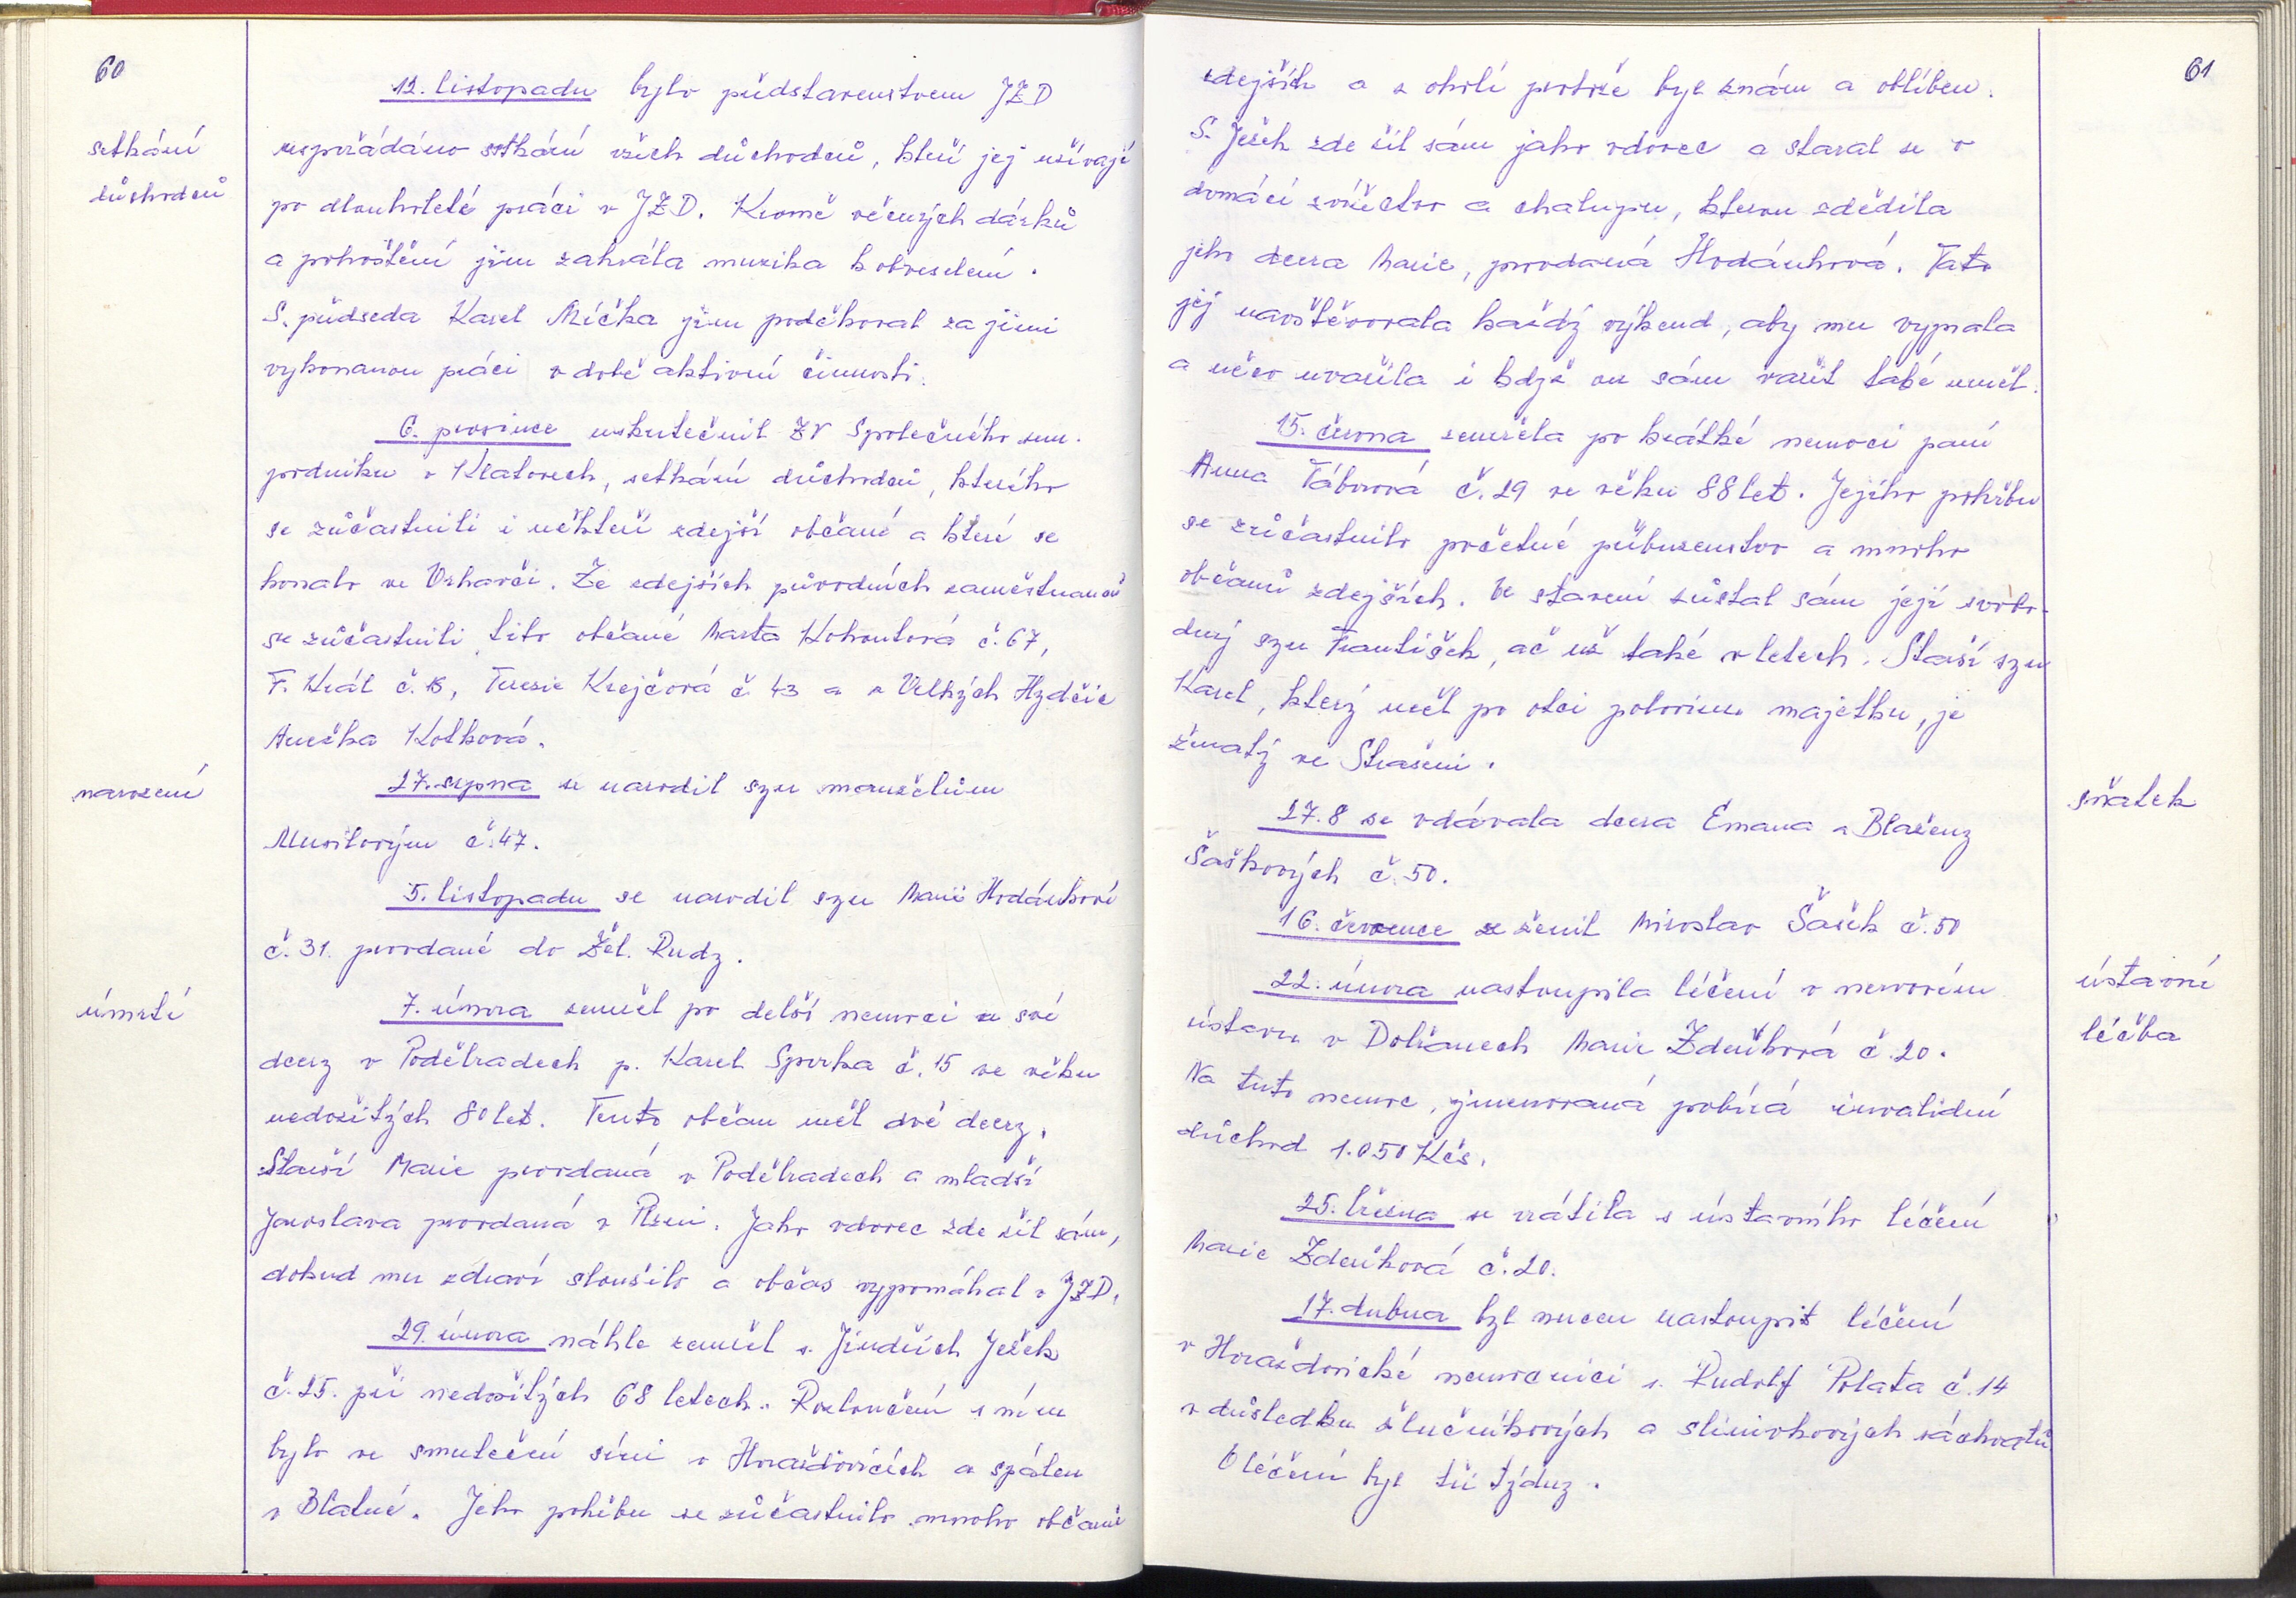 60
setkání
důchodců
12. listopadu bylo představenstvem JZD
uspořádáno setkání všech důchodců, kteří jej užívají
po dlouholeté práci v JZD. Kromě věcných dárků
a pohoštění jim zahrála muzika k obveselení.
S. předseda Karel Mička jim poděkoval za jimi
vykonanou práci v době aktivní činnosti.
6. prosince uskutečnil ZV Společného zem.
podniku v Klatovech, setkání důchodců, kterého
se zúčastnili i někteří zdejší občané a které se
konalo ve Vrhavči. Ze zdejších původních zaměstnanců
se zúčastnili tito občané Marta Kohoutová č. 67,
F. Král č. 15, Terezie Krejčová č 43 a z Velkých Hydčic
Anežka Kotková.
narození
27. srpna se narodil syn manželům
Musilovým č. 47.
5. listopadu se narodil syn Marii Hodánkové
č. 31. provdané do Žel. Rudy.
úmrtí
7. února zemřel po delší nemoci u své
dcery v Poděbradech p. Karel Sporka č. 15 ve věku
nedožitých 80 let. Tento občan měl dvě dcery.
Starší Marie provdaná v Poděbradech a mladší
Jaroslava provdaná v Plzni. Jako vdovec zde žil sám,
dokud mu zdraví sloužilo a občas vypomáhal v JZD.
29. února náhle zemřel s. Jindřich Ježek
č. 25. při nedožitých 68 letech. Rozloučení s ním
bylo ve smuteční síni v Horažďovicích a spálen
v Blatné. Jeho pohřbu se zúčastnilo mnoho občanů
61
zdejších a z okolí protože byl znám a oblíben.
S. Ježek zde žil sám jako vdovec a staral se o
domácí zvířectvo a chalupu, kterou zdědila
jeho dcera Marie, provdaná Hodánková. Tato
jej navštěvovala každý výkend, aby mu vyprala
a něco uvařila i když on sám vařit také uměl.
15. června zemřela po krátké nemoci paní
Anna Táborová č. 29 ve věku 88 let. Jejího pohřbu
se zúčastnilo početné příbuzenstvo a mnoho
občanů zdejších. Ve stavení zůstal sám její svobo-
dný syn František, ač už také v letech. Starší syn
Karel, který měl po otci polovinu majetku, je
ženatý ve Strašeni.
sňatek
27. 8 se vdávala dcera Emana a Blaženy
Šaškových č. 50.
16. července se ženil Miroslav Šašek č. 50
ústavní
léčba
22. února nastoupila léčení v nervovém
ústavu v Dobřanech Marie Zdeňková č 20.
Na tuto nemoc, jmenovaná pobírá invalidní
důchod 1.050 Kčs.
25. března se vrátila s ústavního léčení
Marie Zdeňková č. 20.
17. dubna byl nucen nastoupit léčení
v Horažďovické nemocnici s. Rudolf Polata č. 14
v důsledku žlučníkových a slinivkových záchvatů
O léčení byl tři týdny.